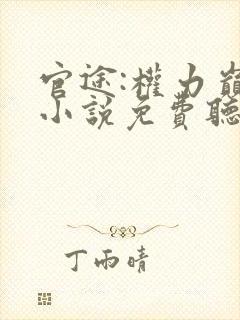 官途:權力巔
小說免費聽
丁雨晴